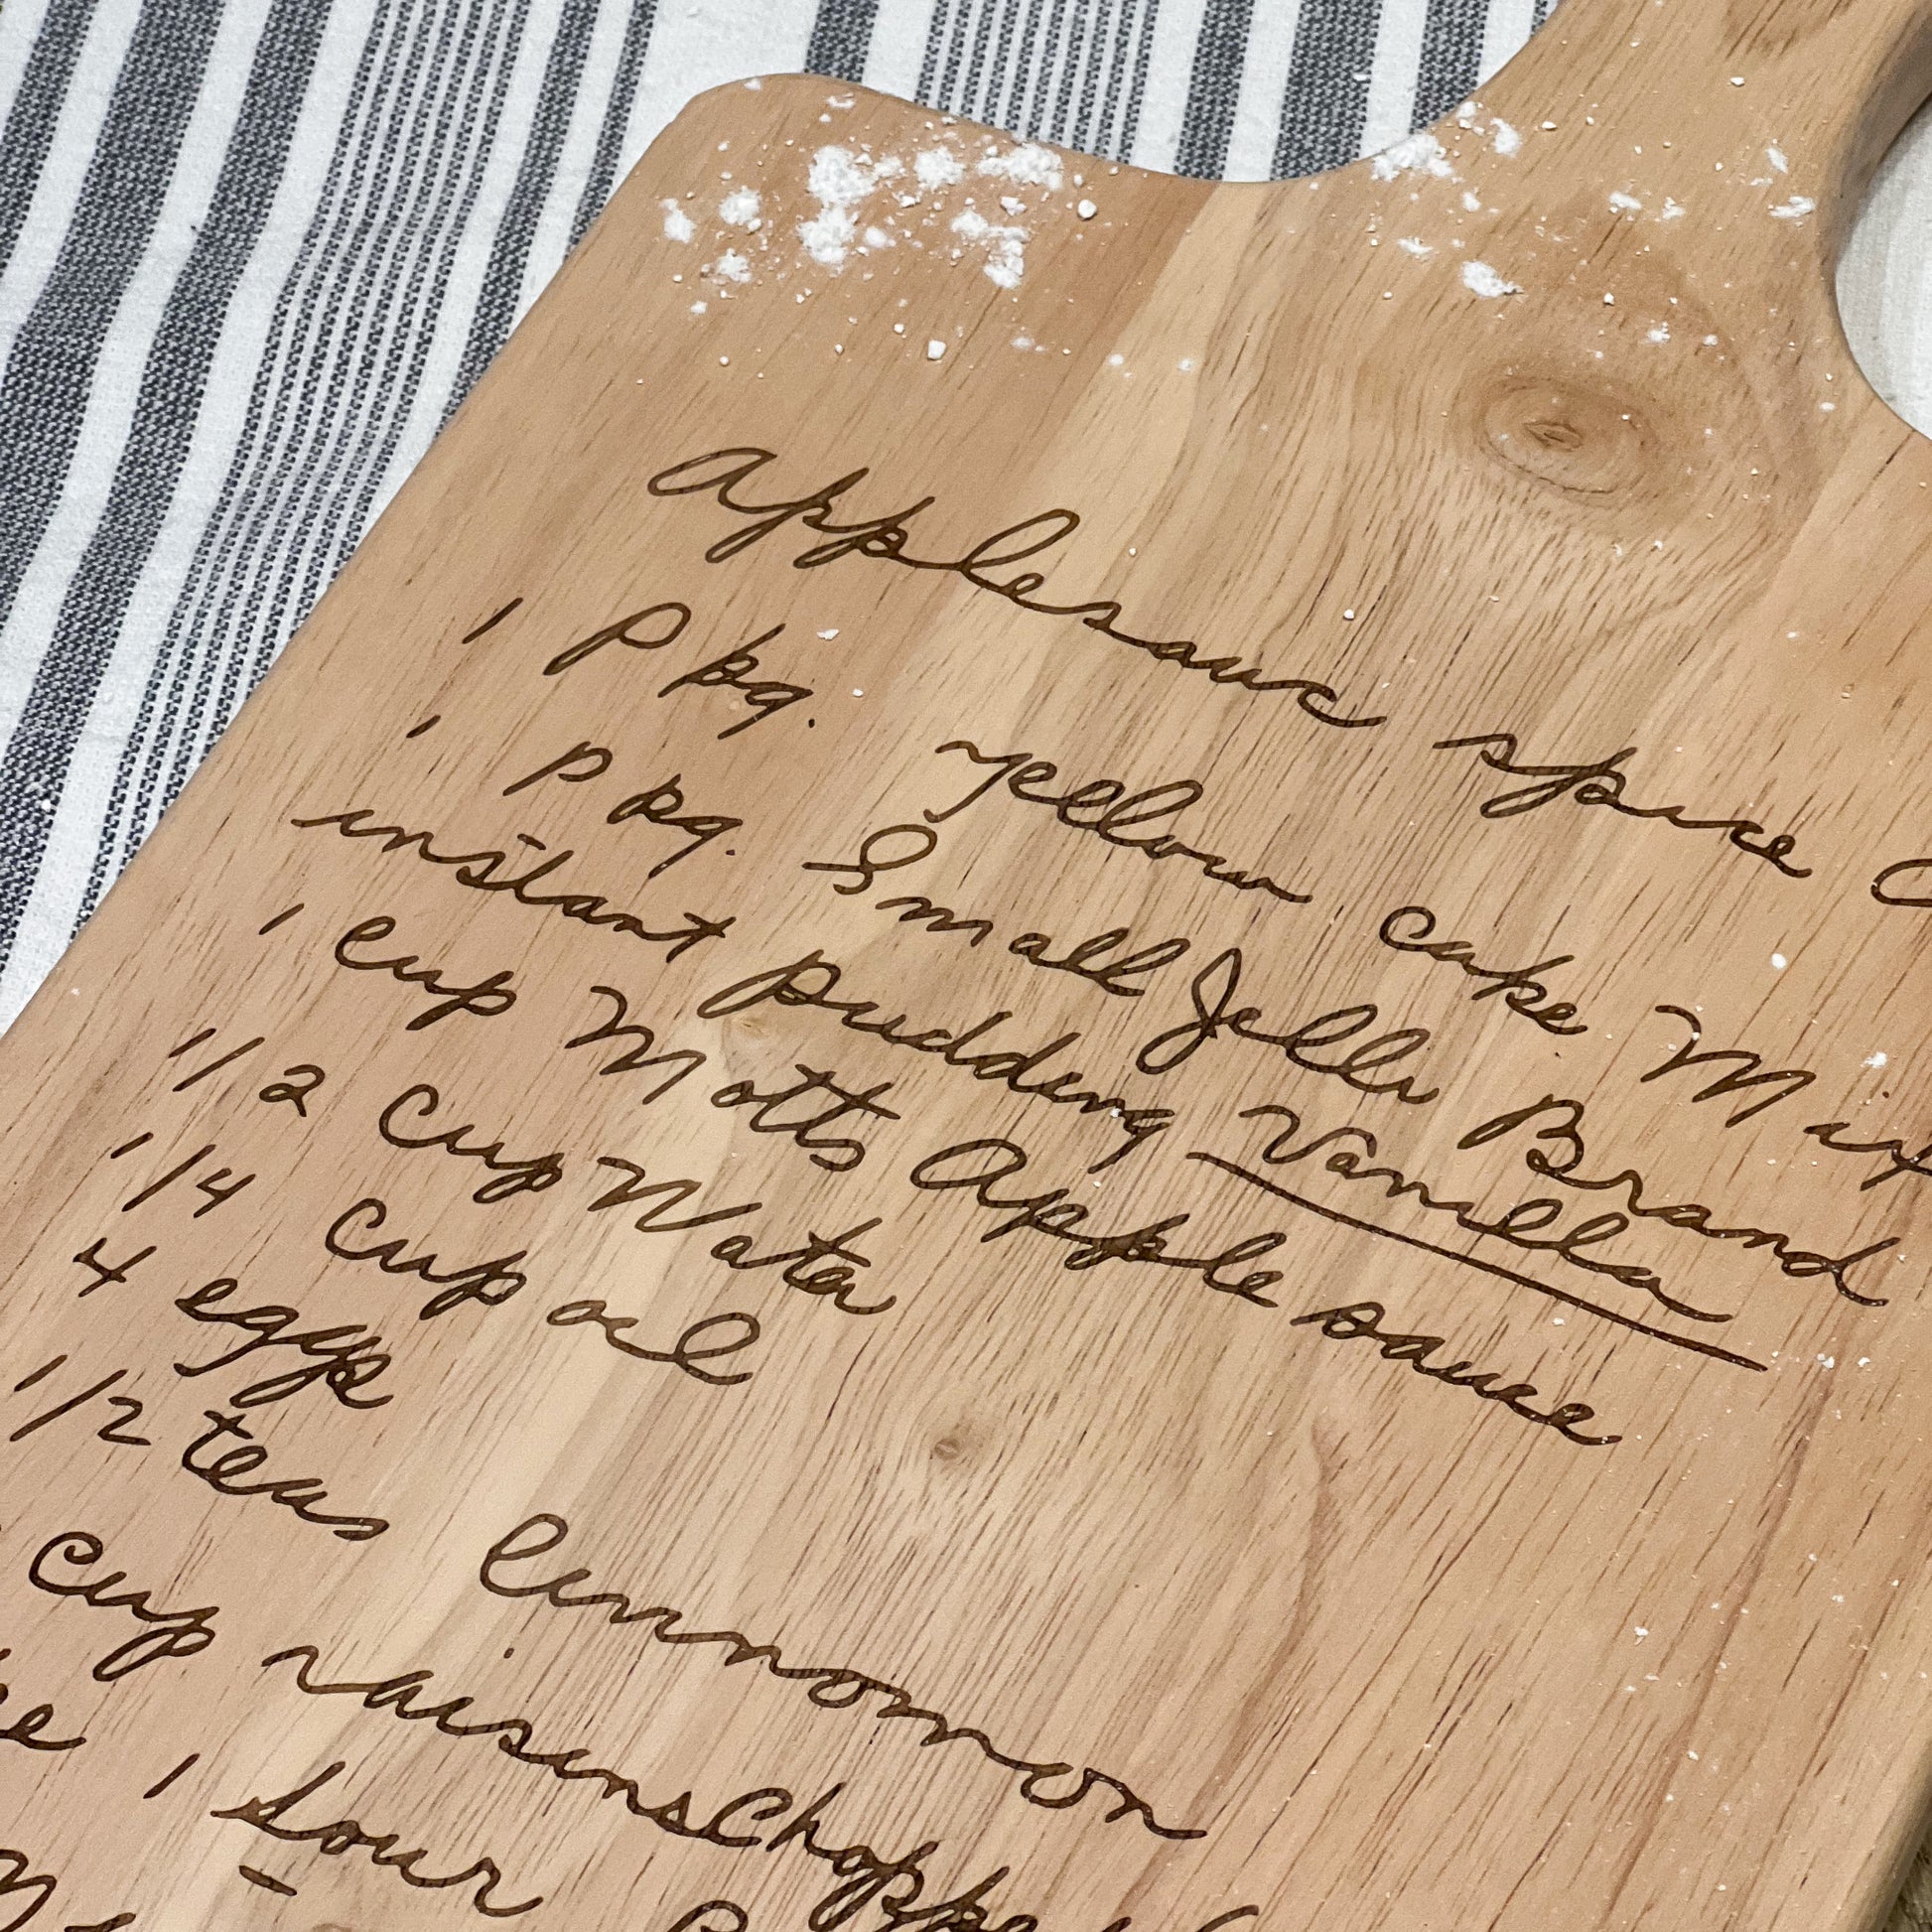 applesauce spice C
1 Pkg. yellow cake Mix
1 Pkg. Small Jello Brand
instant pudding Vanilla
1 Cup Motts Apple sauce
1/2 Cup Water
1/4 Cup oil
4 eggs
1/2 teas Cinnomon
Cup raisins Choppe
1 Sour